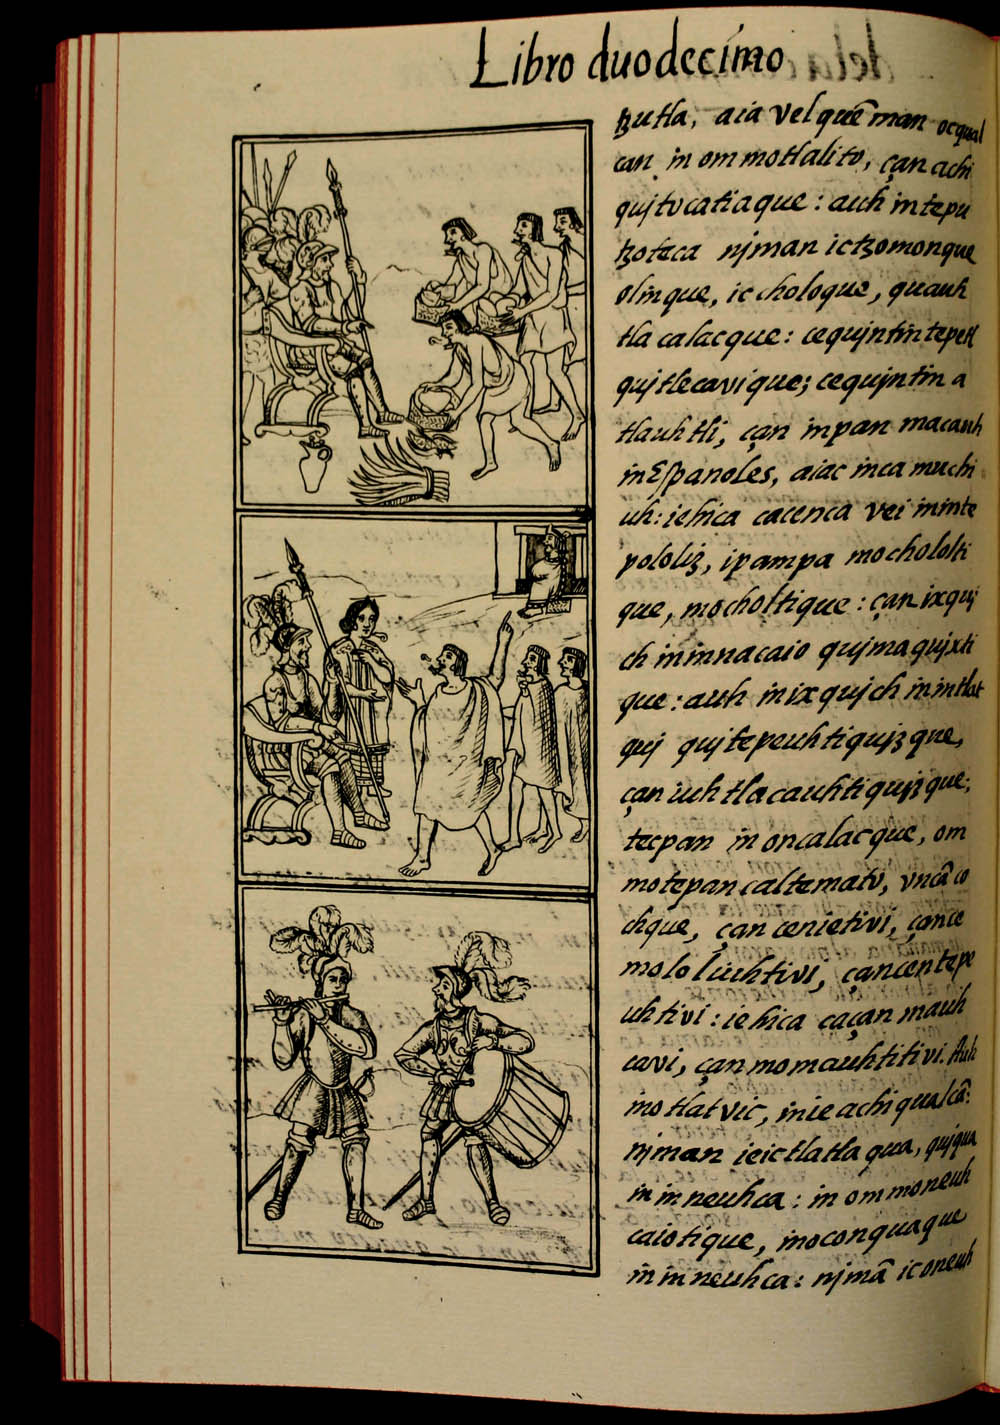 Libro duodecimo
tzutla, aia vel quẽ man oc qual
can in om motlalito, çan achi
qujtocatiaque: auh in tepu
tzoteca njman ic tzomonque
olinque, ic choloque, quauh
tla calacque: cequjntin tepetl
qujtlecavique; cequjntin a
tlauhtli, çan inpan macauh
in Españoles, aiac inca muchi
uh: iehica cacenca vei in inte
pololiz, ipampa mochololti
que, mocholtique: çan ixquj
ch in innacaio qujmaqujxti
que: auh in ixqujch in intlat
quj qujtepeuhtiqujzque,
çan iuh tlacauhtiqujzque;
tecpan in oncalacque, om
motepancaltemato, vncã co
chque, çan cenietivi, çan ce
mololiuhtivi, çancentepe
uhtivi: iehica caçan mauh
cavi, çan momauhtitivi. Auh
motlatvic, in ie achi qualcã:
njman ieic tlatlaqua, qujqua
in inneuhca: in ommoneuh
caiotique, inoconquaque
in inneuhca: njmã ic oneuh